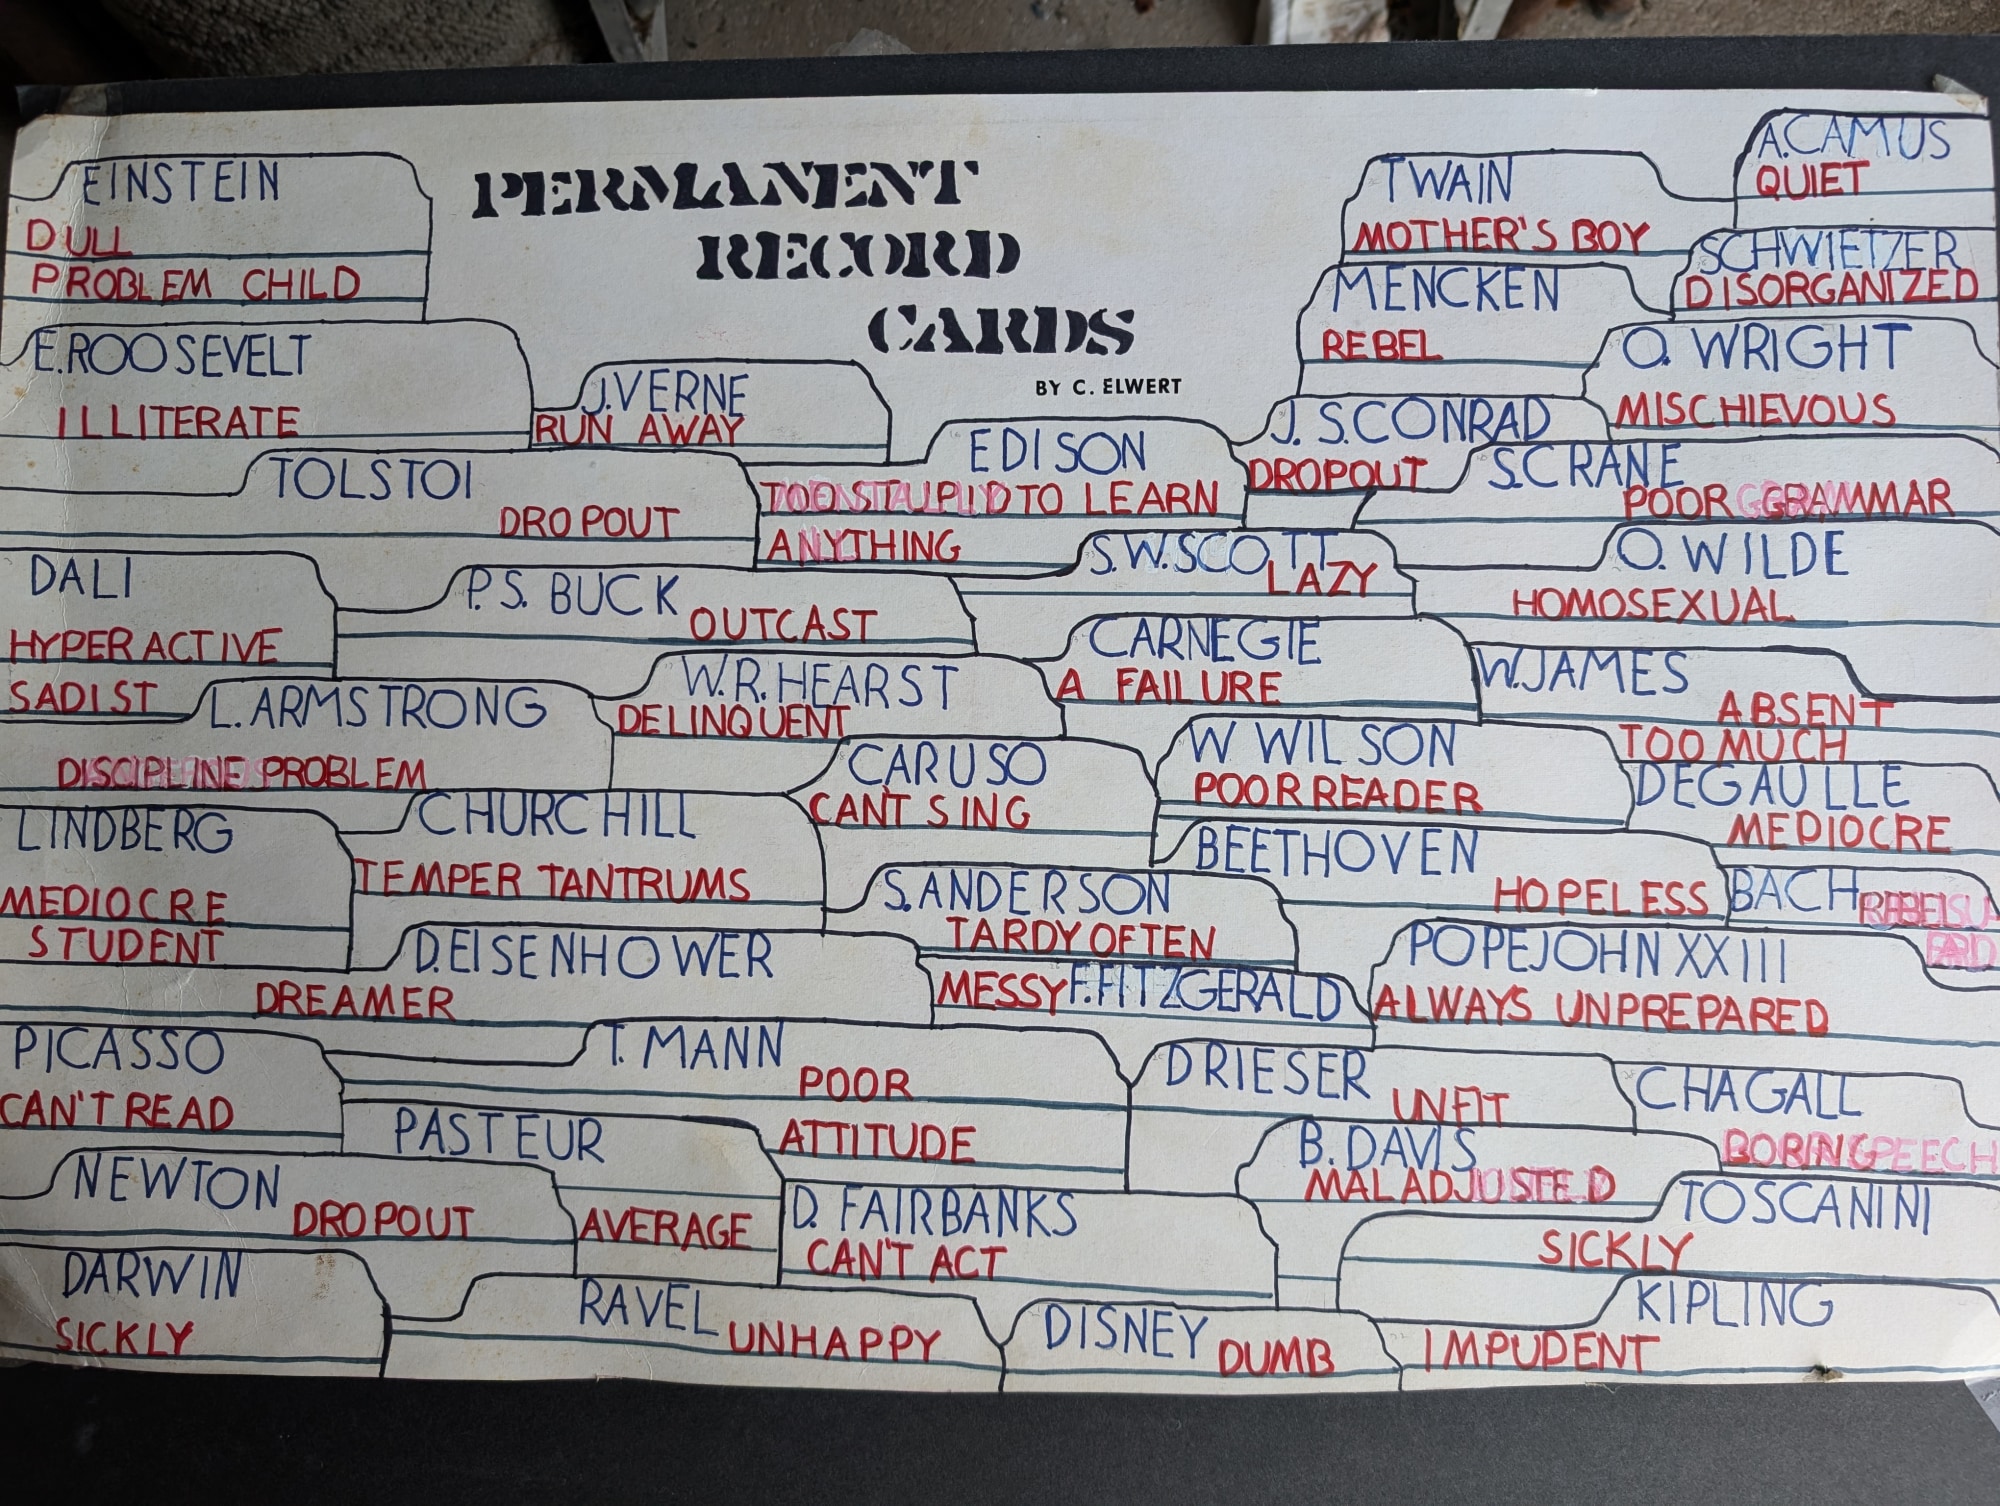 PERMANENT
RECORD
CARDS
BY C. ELWERT
EINSTEIN
DULL
PROBLEM CHILD
E.ROOSEVELT
ILLITERATE
J.VERNE
RUN AWAY
TWAIN
MOTHER'S BOY
A.CAMUS
QUIET
MENCKEN
REBEL
SCHWIETZER
DISORGANIZED
O. WRIGHT
MISCHIEVOUS
TOLSTOI
DROPOUT
EDISON
TOO STUPID TO LEARN
ANYTHING
J. S.CONRAD
DROPOUT
S.CRANE
POOR GRAMMAR
DALI
HYPERACTIVE
SADIST
P.S. BUCK
OUTCAST
S.W.SCOTT
LAZY
O. WILDE
HOMOSEXUAL
L.ARMSTRONG
DISCIPLINE PROBLEM
W.R.HEARST
DELINQUENT
CARNEGIE
A FAILURE
W.JAMES
ABSENT
TOO MUCH
LINDBERG
MEDIOCRE
STUDENT
CHURCHILL
TEMPER TANTRUMS
CARUSO
CAN'T SING
W WILSON
POOR READER
DEGAULLE
MEDIOCRE
BEETHOVEN
HOPELESS
BACH
D.EISENHOWER
DREAMER
S.ANDERSON
TARDY OFTEN
MESSY F.FITZGERALD
POPE JOHN XXIII
ALWAYS UNPREPARED
PICASSO
CAN'T READ
T. MANN
POOR
ATTITUDE
DRIESER
UNFIT
CHAGALL
BORING SPEECH
PASTEUR
AVERAGE
B.DAVIS
MALADJUSTED
NEWTON
DROPOUT
D. FAIRBANKS
CAN'T ACT
TOSCANINI
SICKLY
DARWIN
SICKLY
RAVEL
UNHAPPY
DISNEY
DUMB
KIPLING
IMPUDENT